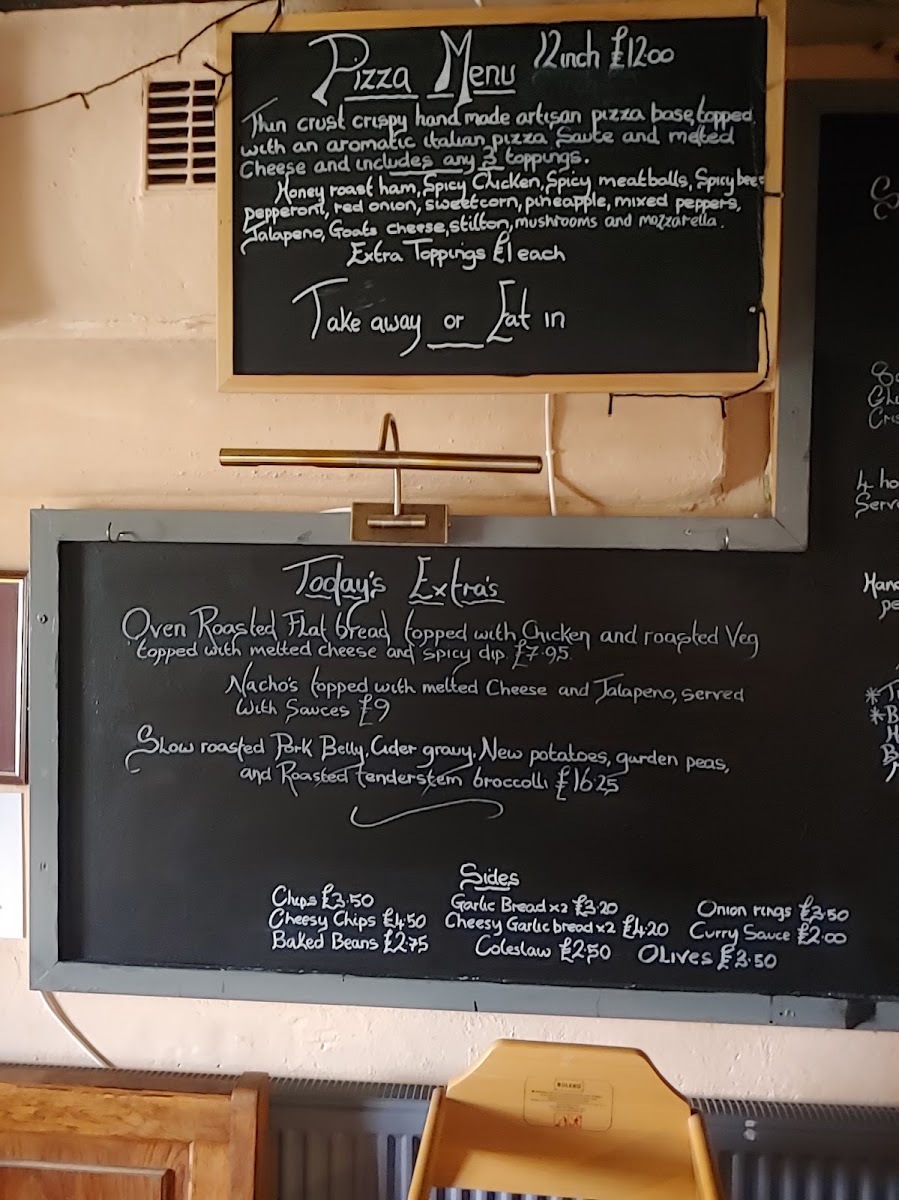 Pizza Menu 12inch £12.00
Thin crust crispy hand made artisan pizza base, topped
with an aromatic italian pizza Sauce and melted
Cheese and includes any 3 toppings.
Honey roast ham, Spicy Chicken, Spicy meatballs, Spicy beef
pepperoni, red onion, sweetcorn, pineapple, mixed peppers,
Jalapeno, Goats cheese, stilton, mushrooms and mozzarella.
Extra Toppings £1 each
Take away or Eat in
Today's Extra's
Oven Roasted Flat bread topped with Chicken and roasted Veg
topped with melted cheese and spicy dip £7.95
Nacho's topped with melted Cheese and Jalapeno, served
With Sauces £9
Slow roasted Pork Belly, Cider gravy, New potatoes, garden peas,
and Roasted tenderstem broccolli £16.25
Sides
Chips £3.50 Garlic Bread x2 £3.20 Onion rings £3.50
Cheesy Chips £4.50 Cheesy Garlic bread x2 £4.20 Curry Sauce £2.00
Baked Beans £2.75 Coleslaw £2.50 OLives £3.50
4 ho
Serve
Hand
pe